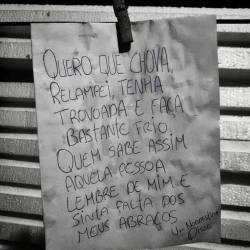 QUERO QUE CHOVA,
RELAMPEI, TENHA
TROVOADA E FAÇA
BASTANTE FRIO.
QUEM SABE ASSIM
AQUELA PESSOA
LEMBRE DE MIM E
SINTA FALTA DOS
MEUS ABRAÇOS